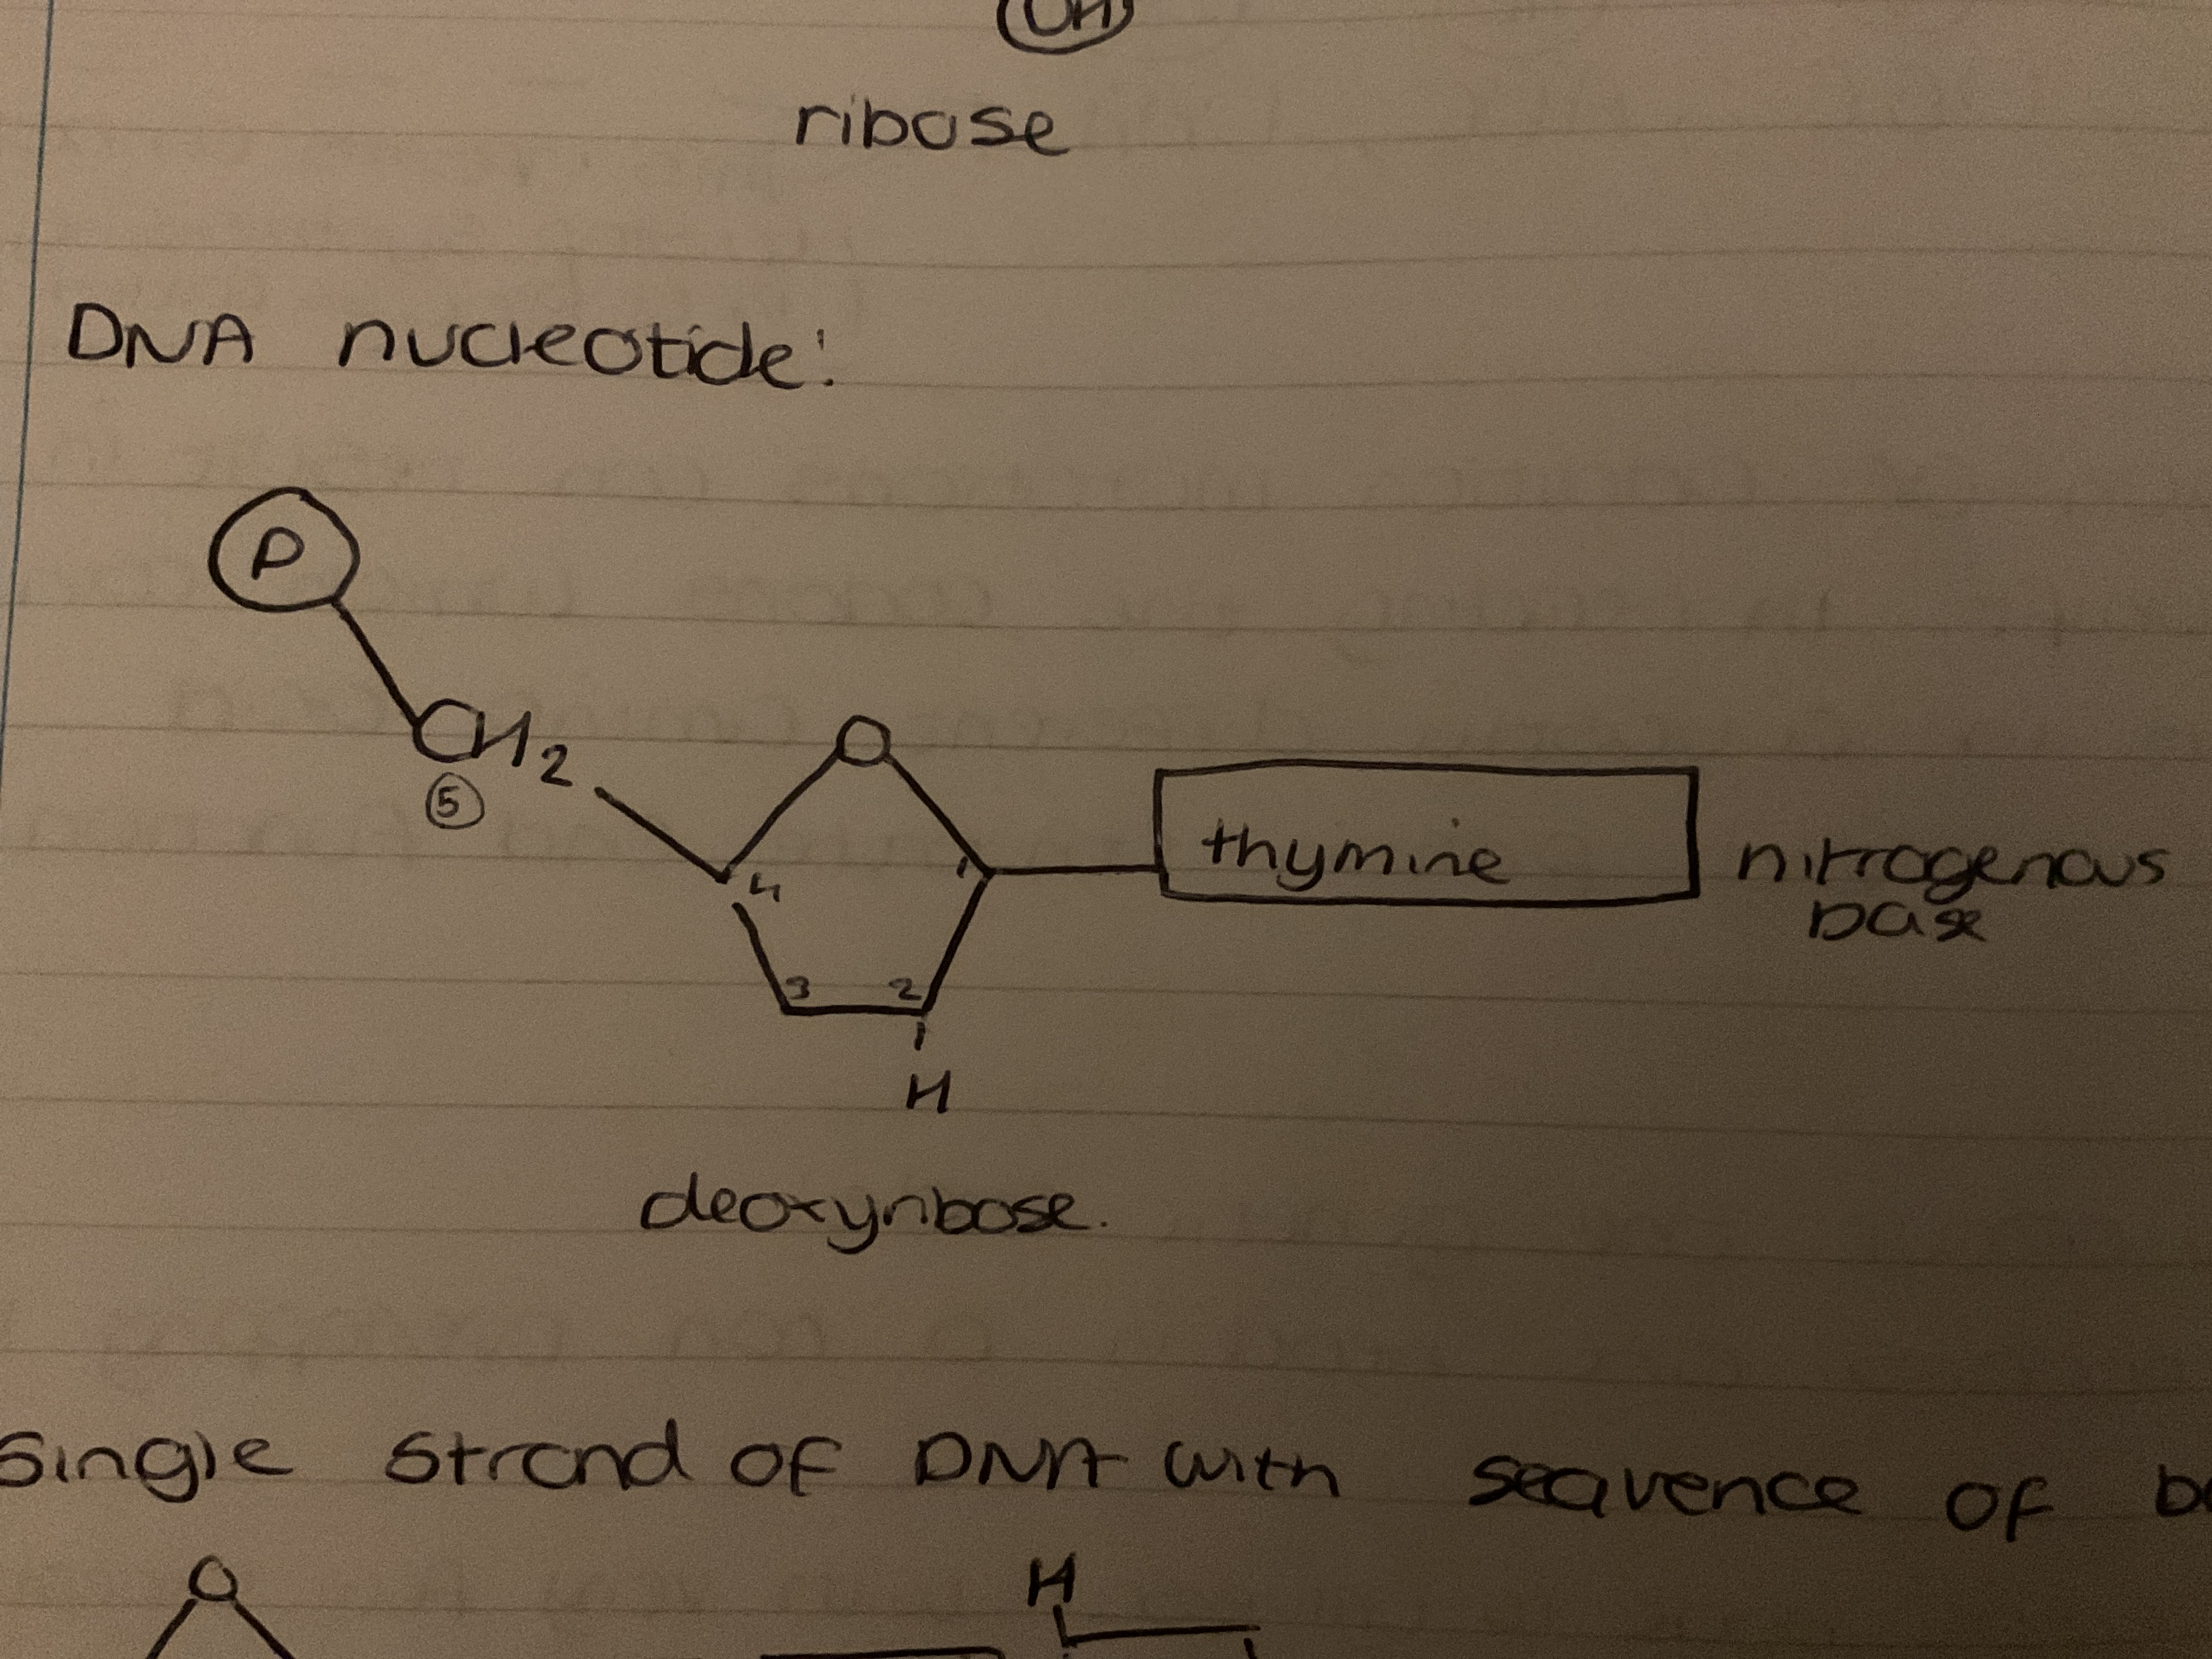 OH
ribose
DNA nucleotide:
P
CH2
5
O
4
1
thymine
nitrogenous
base
3
2
H
deoxyribose.
Single strand of DNA with sequence of
O
H